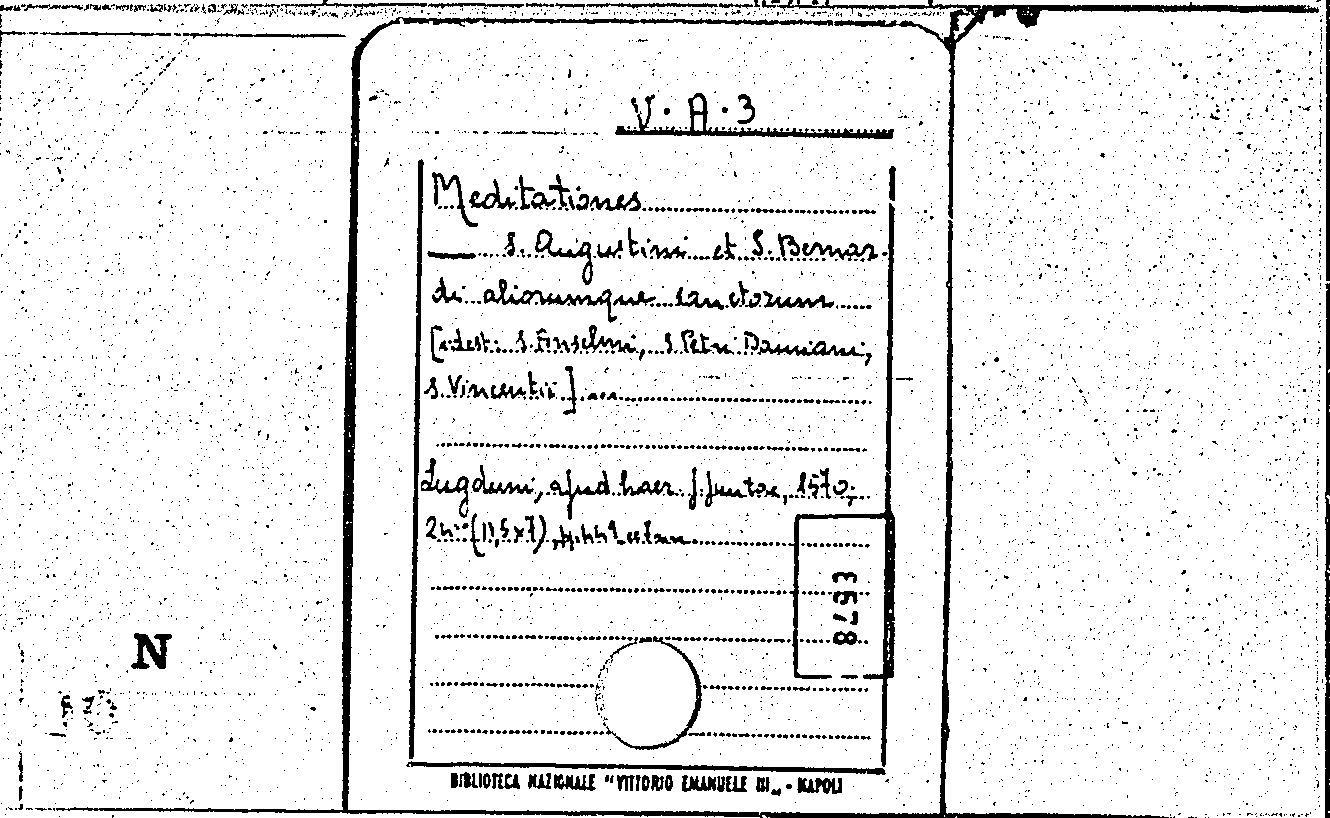 V. A. 3
Meditationes
— S. Augustini et S. Bernar-
di aliorumque sanctorum
[idest: S. Anselmi, S. Petri Damiani,
S. Vincentii] ...
Lugduni, apud haer. J. Juntae, 1570;
24° (11,5x7),
3578
N
BIBLIOTECA NAZIONALE "VITTORIO EMANUELE III„ - NAPOLI